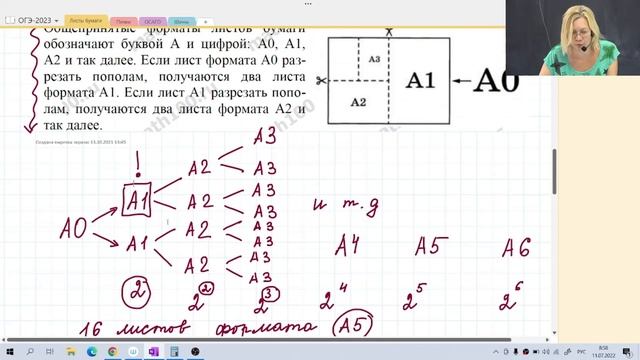 ОГЭ-2023
Листы бумаги
Печки
ОСАГО
Шины
Общепринятые форматы листов бумаги
обозначают буквой А и цифрой: А0, А1,
А2 и так далее. Если лист формата А0 раз-
резать пополам, получаются два листа
формата А1. Если лист А1 разрезать попо-
лам, получаются два листа формата А2 и
так далее.
А3
А2
А1
А0
Создано
11.10.2021
!
А0
А1
А1
А2
А2
А2
А2
А3
А3
А3
А3
А3
А3
А3
А3
и т.д
А4 А5 А6
2 2² 2³ 2⁴ 2⁵ 2⁶
16 листов формата А5
РУС
8:58
11.07.2022